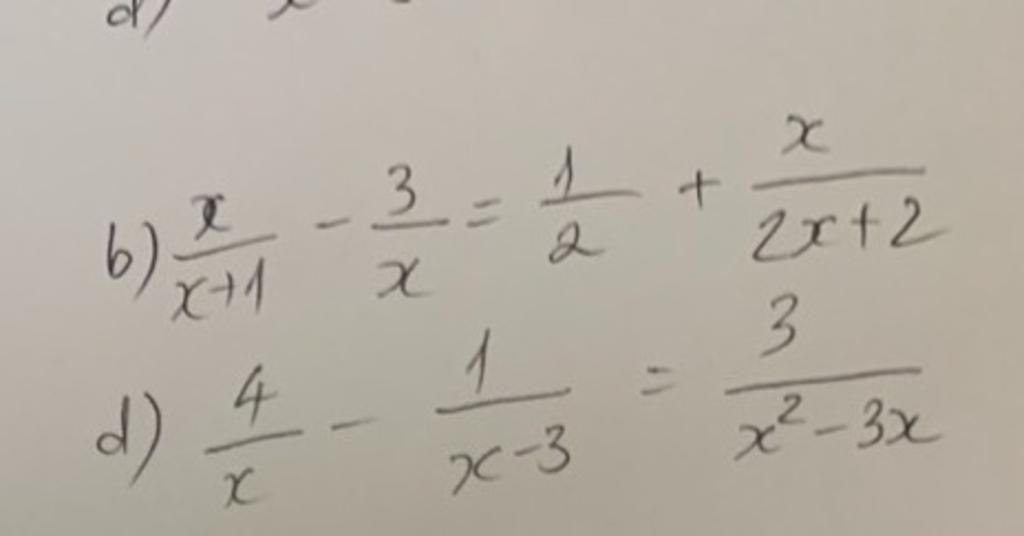 b) x/(x+1) - 3/x = 1/2 + x/(2x+2)
d) 4/x - 1/(x-3) = 3/(x²-3x)